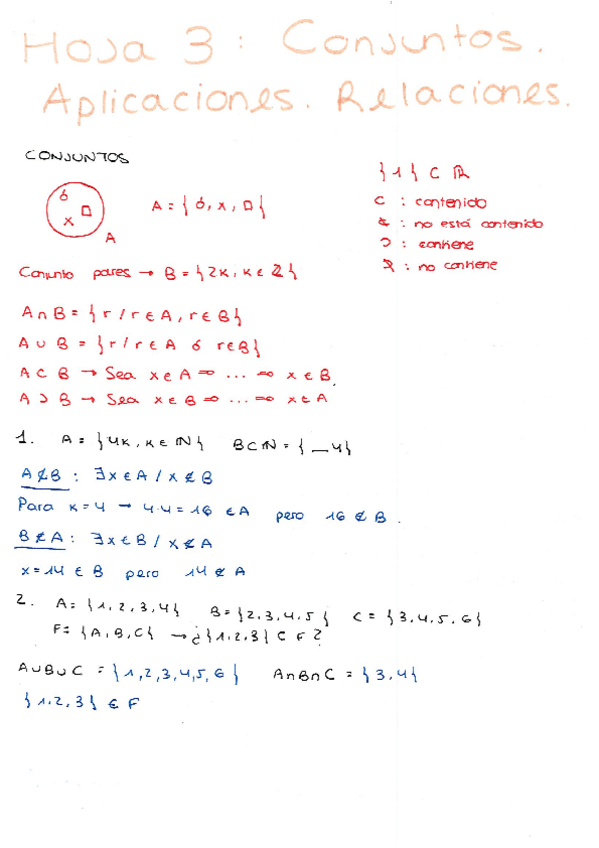 Hoja 3: Conjuntos.
Aplicaciones. Relaciones.
CONJUNTOS
ó
x □
A
A = {ó, x, □}
{1} ⊂ ℝ
⊂ : contenido
⊄ : no está contenido
⊃ : contiene
⊅ : no contiene
Conjunto pares → B = {2k, k ∈ ℤ}
A ∩ B = {r / r ∈ A, r ∈ B}
A ∪ B = {r / r ∈ A ó r ∈ B}
A ⊂ B → Sea x ∈ A ⇒ ... ⇒ x ∈ B.
A ⊃ B → Sea x ∈ B ⇒ ... ⇒ x ∈ A
1. A = {4k, k ∈ ℕ} B ⊂ ℕ = {_4}
A ⊄ B : ∃x ∈ A / x ∉ B
Para k = 4 → 4·4 = 16 ∈ A pero 16 ∉ B.
B ⊄ A : ∃x ∈ B / x ∉ A
x = 14 ∈ B pero 14 ∉ A
2. A = {1, 2, 3, 4} B = {2, 3, 4, 5} C = {3, 4, 5, 6}
F = {A, B, C} → ¿{1, 2, 3} ⊂ F?
A ∪ B ∪ C = {1, 2, 3, 4, 5, 6} A ∩ B ∩ C = {3, 4}
{1, 2, 3} ∉ F